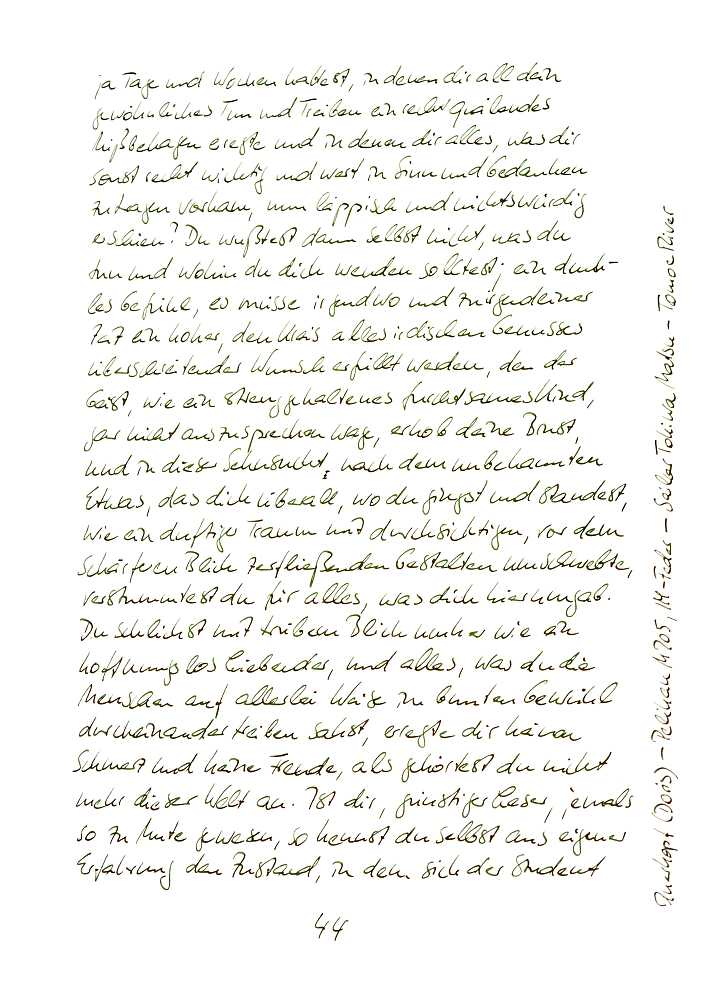 ja Tage und Wochen hattest, in denen dir all dein
gewöhnliches Tun und Treiben ein recht quälendes
Mißbehagen erregte und in denen dir alles, was dir
sonst recht wichtig und wert in Sinn und Gedanken
zu tragen vorkam, nun läppisch und nichtswürdig
erschien? Du wußtest dann selbst nicht, was du
tun und wohin du dich wenden solltest; ein dunk-
les Gefühl, es müsse irgendwo und zu irgendeiner
Zeit ein hoher, den Kreis alles irdischen Genusses
überschreitender Wunsch erfüllt werden, den der
Geist, wie ein strenggehaltenes furchtsames Kind,
gar nicht auszusprechen wage, erhob deine Brust,
und in dieser Sehnsucht, nach dem unbekannten
Etwas, das dich überall, wo du gingst und standest,
wie ein duftiger Traum mit durchsichtigen, vor dem
schärferen Blick zerfließenden Gestalten umschwebte,
verstummtest du für alles, was dich hier umgab.
Du schlichst mit trübem Blick umher wie ein
hoffnungslos Liebender, und alles, was du die
Menschen auf allerlei Weise im bunten Gewühl
durcheinander treiben sahst, erregte dir keinen
Schmerz und keine Freude, als gehörtest du nicht
mehr dieser Welt an. Ist dir, günstiger Leser, jemals
so zu Mute gewesen, so kennst du selbst aus eigner
Erfahrung den Zustand, in dem sich der Student
44
Querkopf (Doris) – Pelikan M705, IM-Feder – Sailor Tokiwa Matsu – Tomoe River